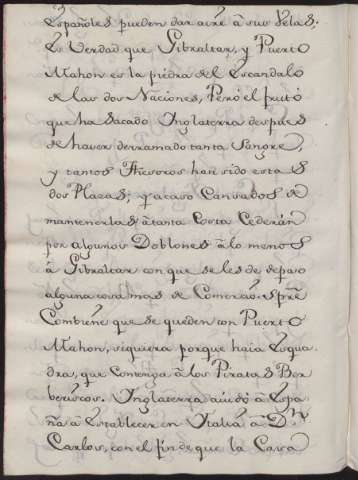 Españoles pueden dar aire â sus Velas;
Es Verdad que Gibraltar, y Puerto
Mahon es la piedra del Escandalo
de las dos Naciones, Pero el fruto
que ha sacado Inglaterra despues
de haver derramado tanta Sangre,
y tantos Thesoros han sido estas
dos Plazas; y acaso Cansados de
mantenerlas â tanta Costa Cederán
por algunos Doblones â lo menos
â Gibraltar con que se les de
alguna cosa mas de Comercio. Spre
Combiene que se queden con Puerto
Mahon, siquiera porque haia Esqua-
dra, que Contenga â los Piratas Ber-
beriscos. Ynglaterra aiudó â Espa-
ña â Establecer en Italia â Dn.
Carlos, con el fin de que la Casa